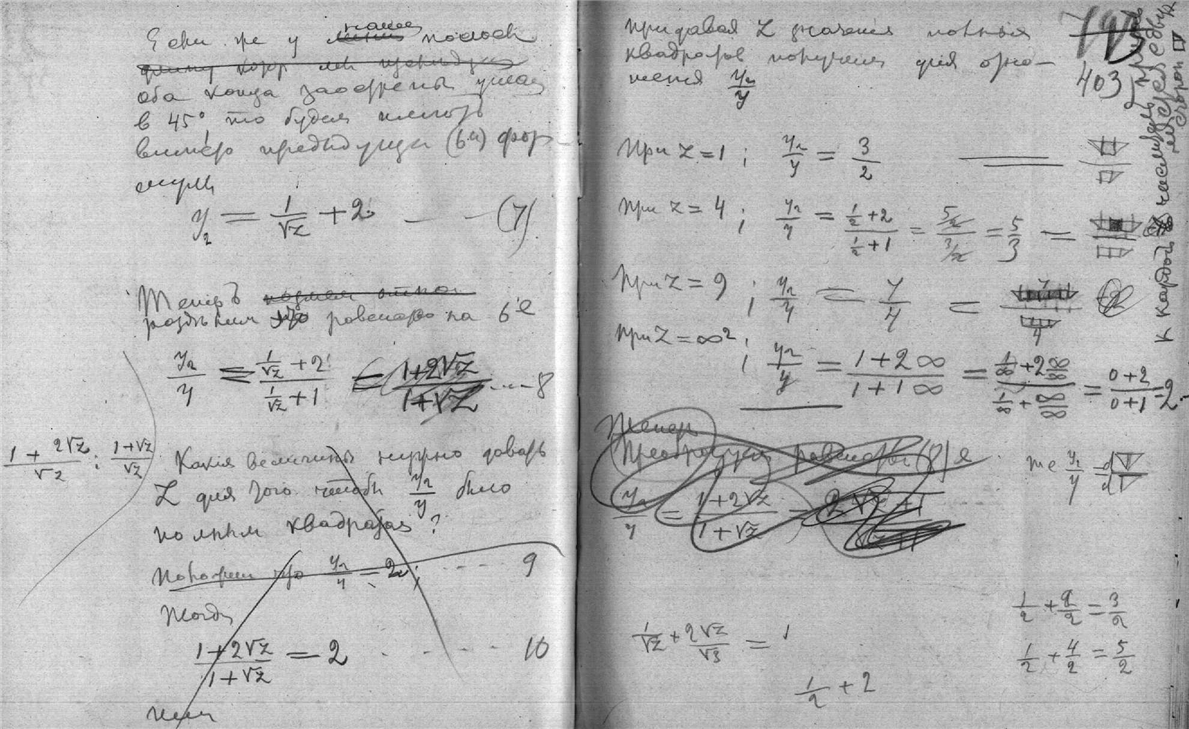 Если же у нашей полосы
оба конца заострены
в 45° то будем иметь
вместо предыдущей (6й) фор-
мулы
y₂ = 1/√z + 2 — — (7)
Теперь
разделим равенство на 6е
y₂/y = (1/√z + 2)/(1/√z + 1) = (1+2√z)/(1+√z) --- 8
(1+2√z)/√z : (1+√z)/√z
Какия величины нужно давать
Z для того чтобы y₂/y было
полным квадратом?
Положим что y₂/y = 2; --- 9
Тогда
(1+2√z)/(1+√z) = 2 - - - - 10
или
Придавая Z значения полных
квадратов получим для отно-
шения y₂/y
403
При Z = 1; y₂/y = 3/2
При Z = 4; y₂/y = (1/2 + 2)/(1/2 + 1) = (5/2)/(3/2) = 5/3 =
При Z = 9; y₂/y = 7/4 =
При Z = ∞²; y₂/y = (1+2∞)/(1+1∞) = (1/∞ + 2∞/∞)/(1/∞ + ∞/∞) = (0+2)/(0+1) = 2.
Теперь
Преобразуем равенство (8)е
y₂/y = (1+2√z)/(1+√z) =
то y₂/y =
1/√z + 2√z/√3 = 1
1/2 + 2
1/2 + 2/2 = 3/2
1/2 + 4/2 = 5/2
к каждой